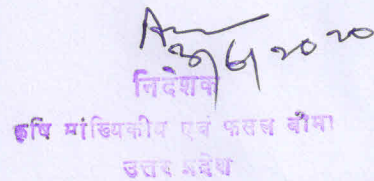 3/6/2020
निदेशक
कृषि सांख्यिकीय एवं फसल बीमा
उत्तर प्रदेश